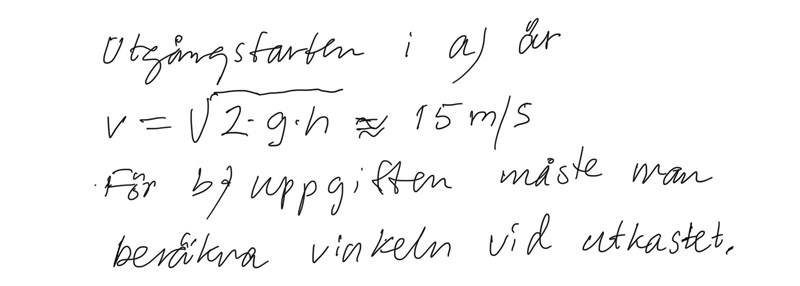 Utgångsfarten i a) är
v = √2·g·h ≈ 15 m/s
För b) uppgiften måste man
beräkna vinkeln vid utkastet.